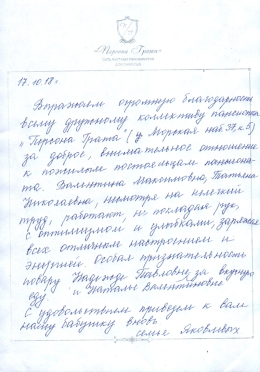 «Персона Грата»
17.10.18г.
Выражаем огромную благодарность
всему дружному коллективу пансионата
"Персона Грата" (у Морская наб 37, к.5)
за доброе, внимательное отношение
к пожилым постояльцам пансиона-
та. Валентина Максимовна, Татьяна
Николаевна, несмотря на нелегкий
труд, работают, не покладая рук,
с оптимизмом и улыбками, заряжая
всех отличным настроением и
энергией. Особая признательность
повару Надежде Павловне за вкусную
еду. и Наталье Валентиновне
С удовольствием привезем к вам
нашу бабушку вновь.
семья Яковлевых